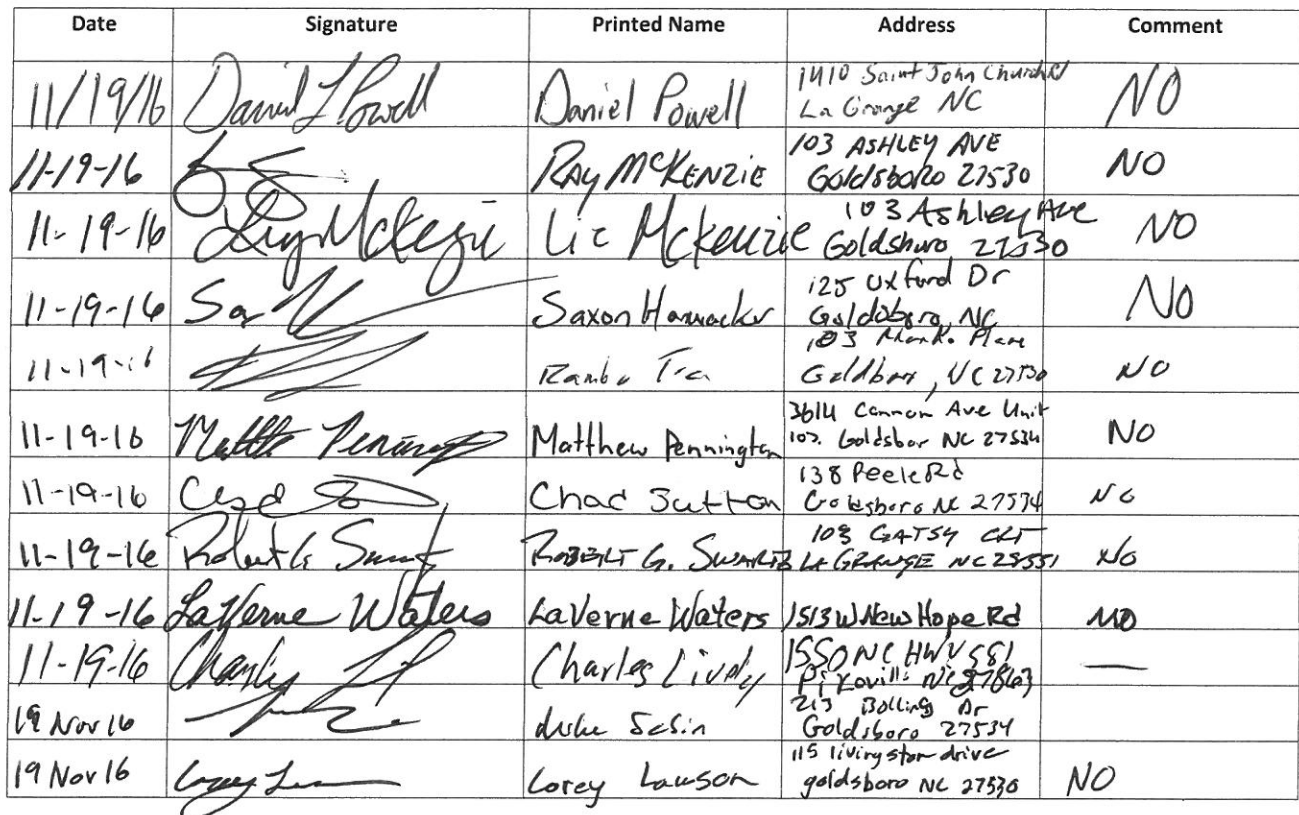 Date Signature Printed Name Address Comment
11/19/16 Daniel L Powell Daniel Powell 1410 Saint John Church Rd NO
La Grange NC
11-19-16 RAY McKENZIE 103 ASHLEY AVE NO
Goldsboro 27530
11-19-16 Liz McKenzie 103 Ashley Ave NO
Goldsboro 27530
11-19-16 Saxon 125 Oxford Dr NO
Goldsboro, NC
11-19-16 103 NO
NC 27530
11-19-16 Matthew Pennington 3614 Cannon Ave Unit NO
Goldsbor NC 27534
11-19-16 Chad Sutton 138 Peele Rd NO
Goldsboro NC 27534
11-19-16 Robert G. ROBERT G. SWARTZ 103 GATSY CRT NO
LA GRANGE NC 28551
11-19-16 LaVerne Waters LaVerne Waters 1513 W New Hope Rd NO
11-19-16 Charles Lively 1550 NC HWY 581 —
Pikeville NC 27863
19 Nov 16 213 Bolling Dr
Goldsboro 27534
19 Nov 16 Corey Lawson 115 livingston drive NO
goldsboro NC 27530